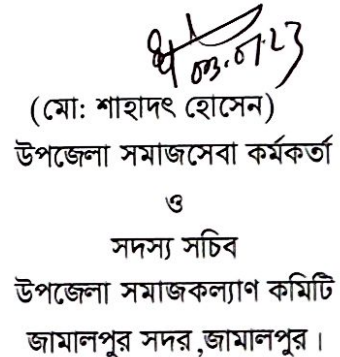 03.07.23
(মো: শাহাদৎ হোসেন)
উপজেলা সমাজসেবা কর্মকর্তা
ও
সদস্য সচিব
উপজেলা সমাজকল্যাণ কমিটি
জামালপুর সদর ,জামালপুর।